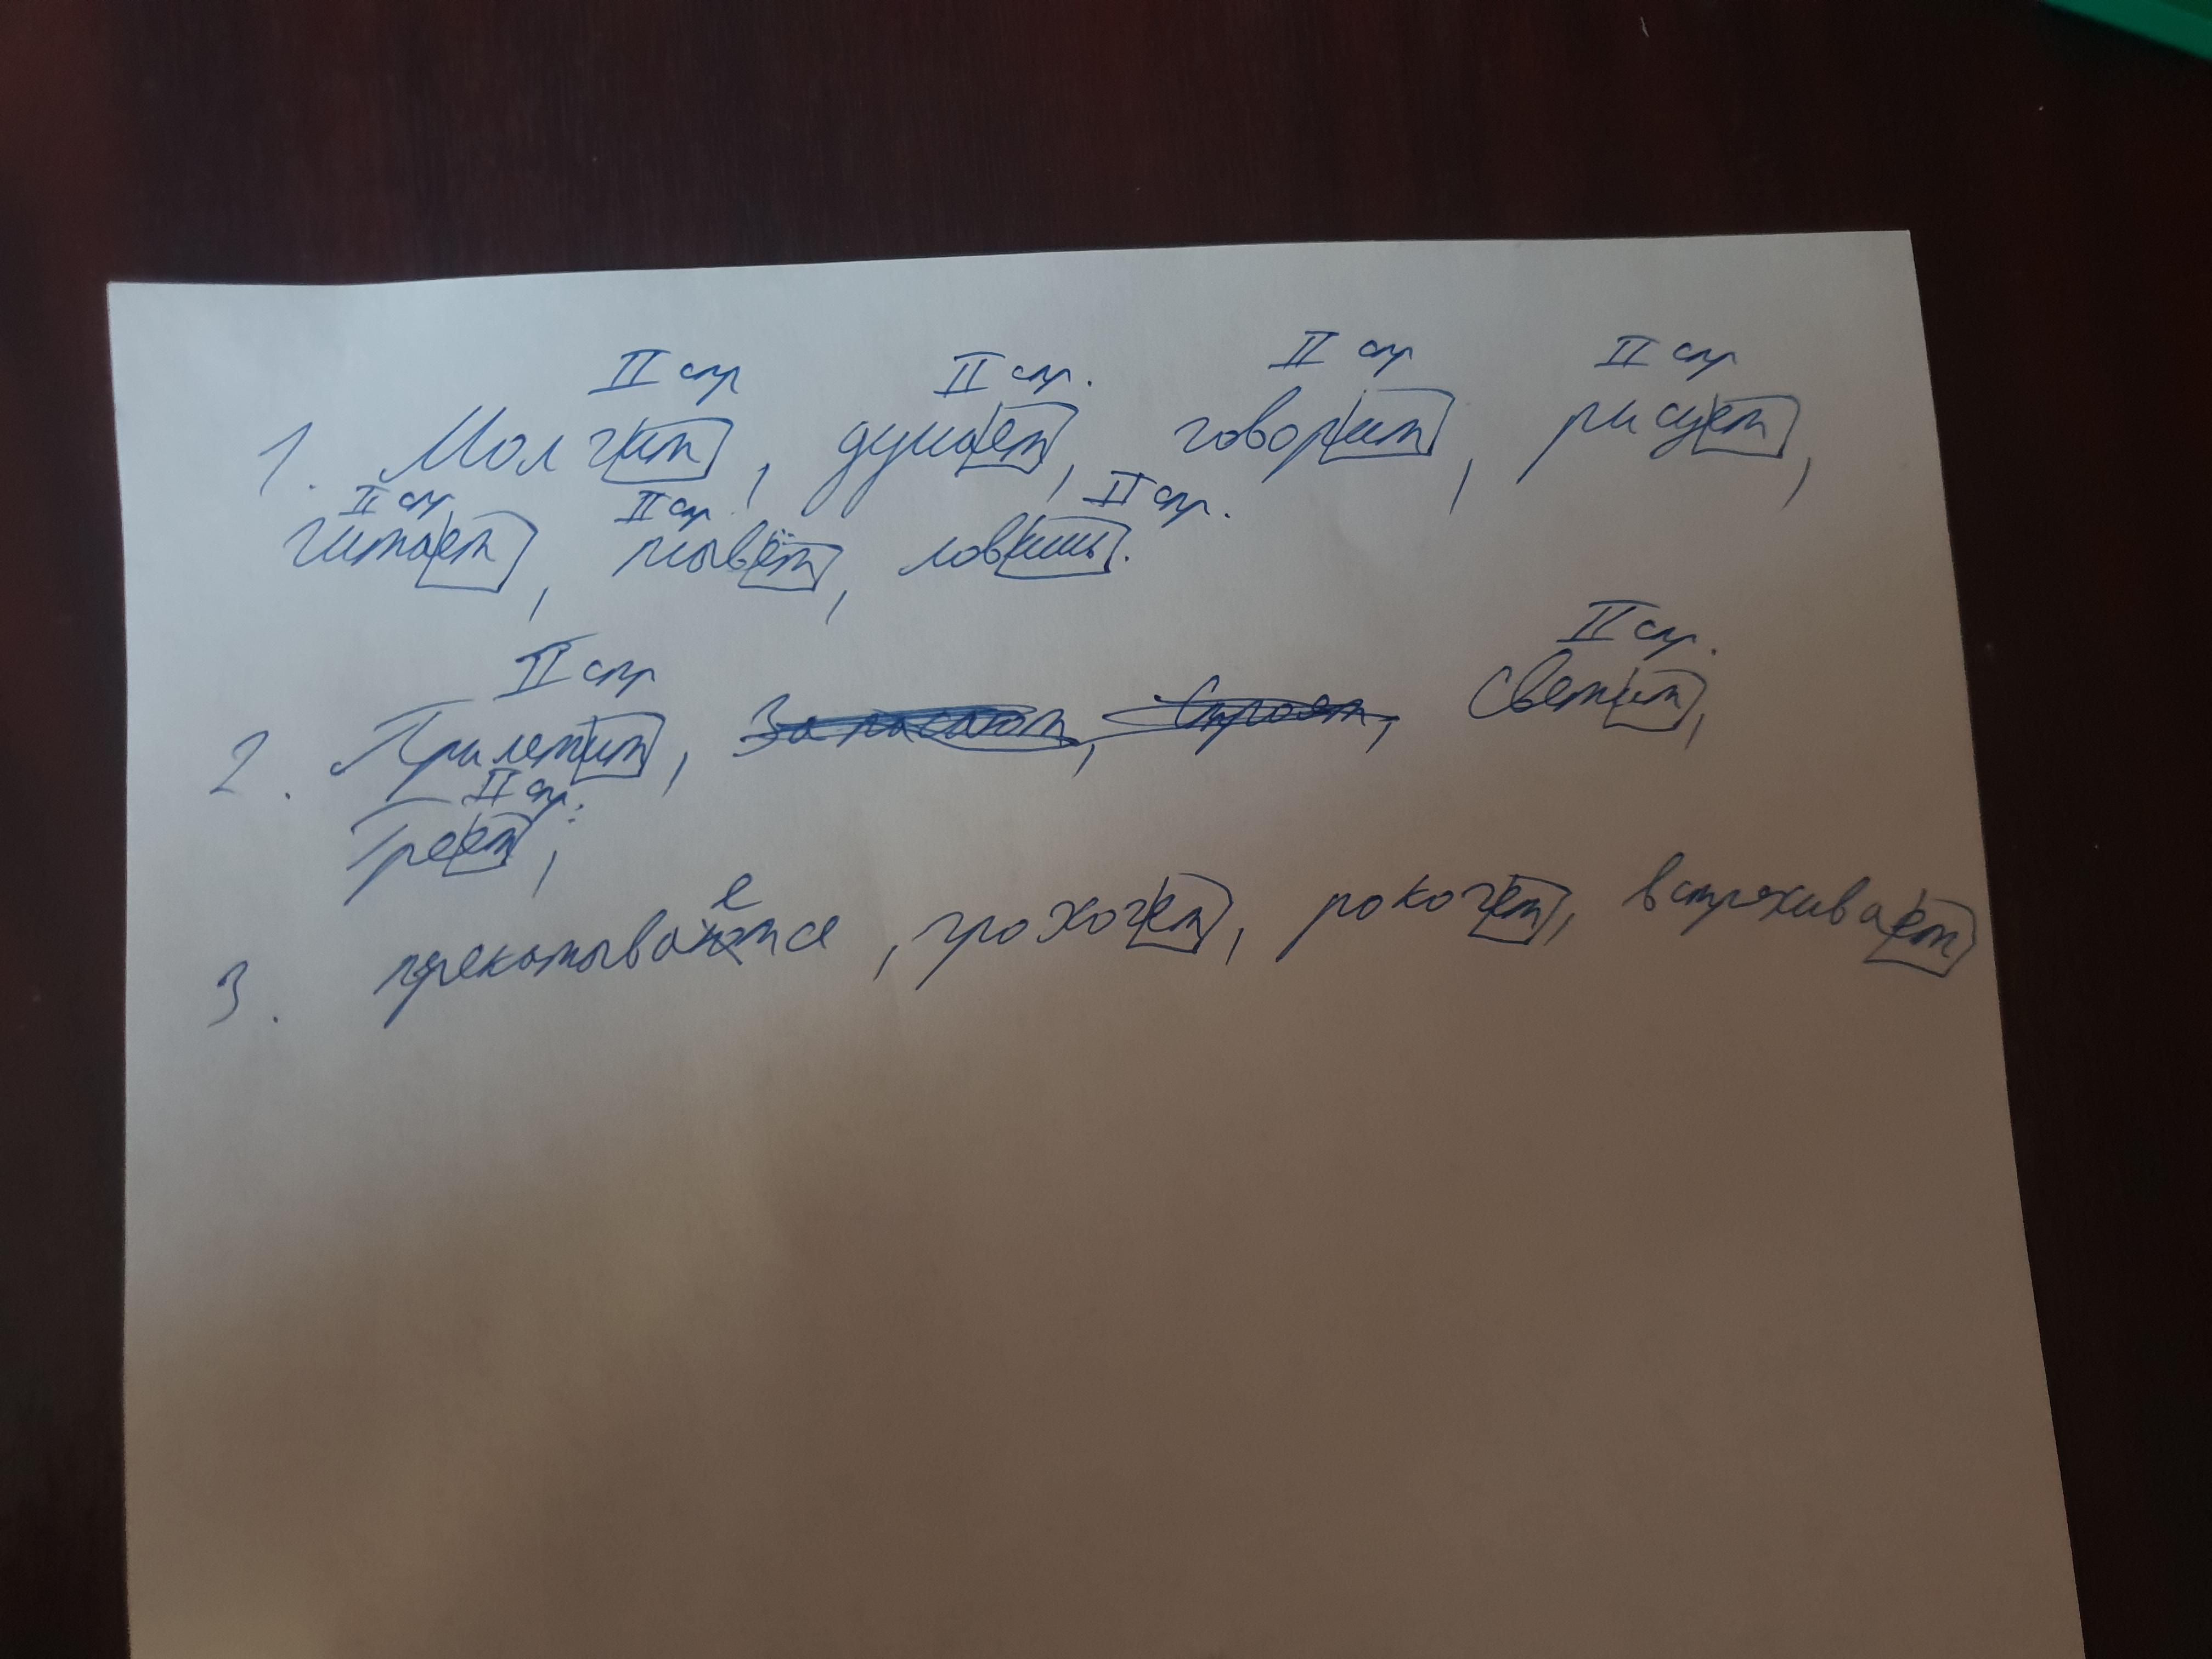 II спр II спр. II спр II спр
1. Молчит, думает, говорит, рисует,
II спр II спр. II спр.
читает, плывёт, ловишь.
II спр II спр.
2. Прилетит, Запасают, Строят, Светит,
II спр.
Греет,
3. прекатывается, грохочет, рокочет, встряхивает